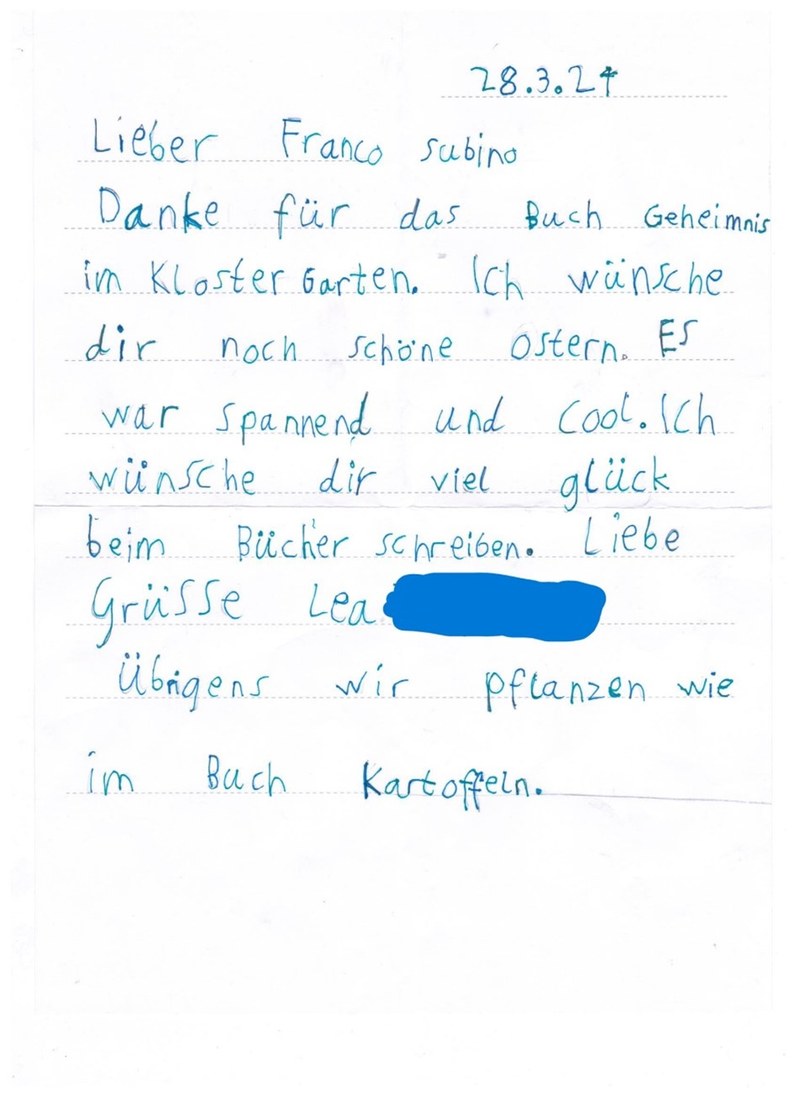 28.3.24
Lieber Franco Subino
Danke für das Buch Geheimnis
im Kloster Garten. Ich wünsche
dir noch schöne Ostern. Es
war spannend und cool. Ich
wünsche dir viel glück
beim Bücher schreiben. Liebe
Grüsse Lea
Übrigens wir pflanzen wie
im Buch Kartoffeln.